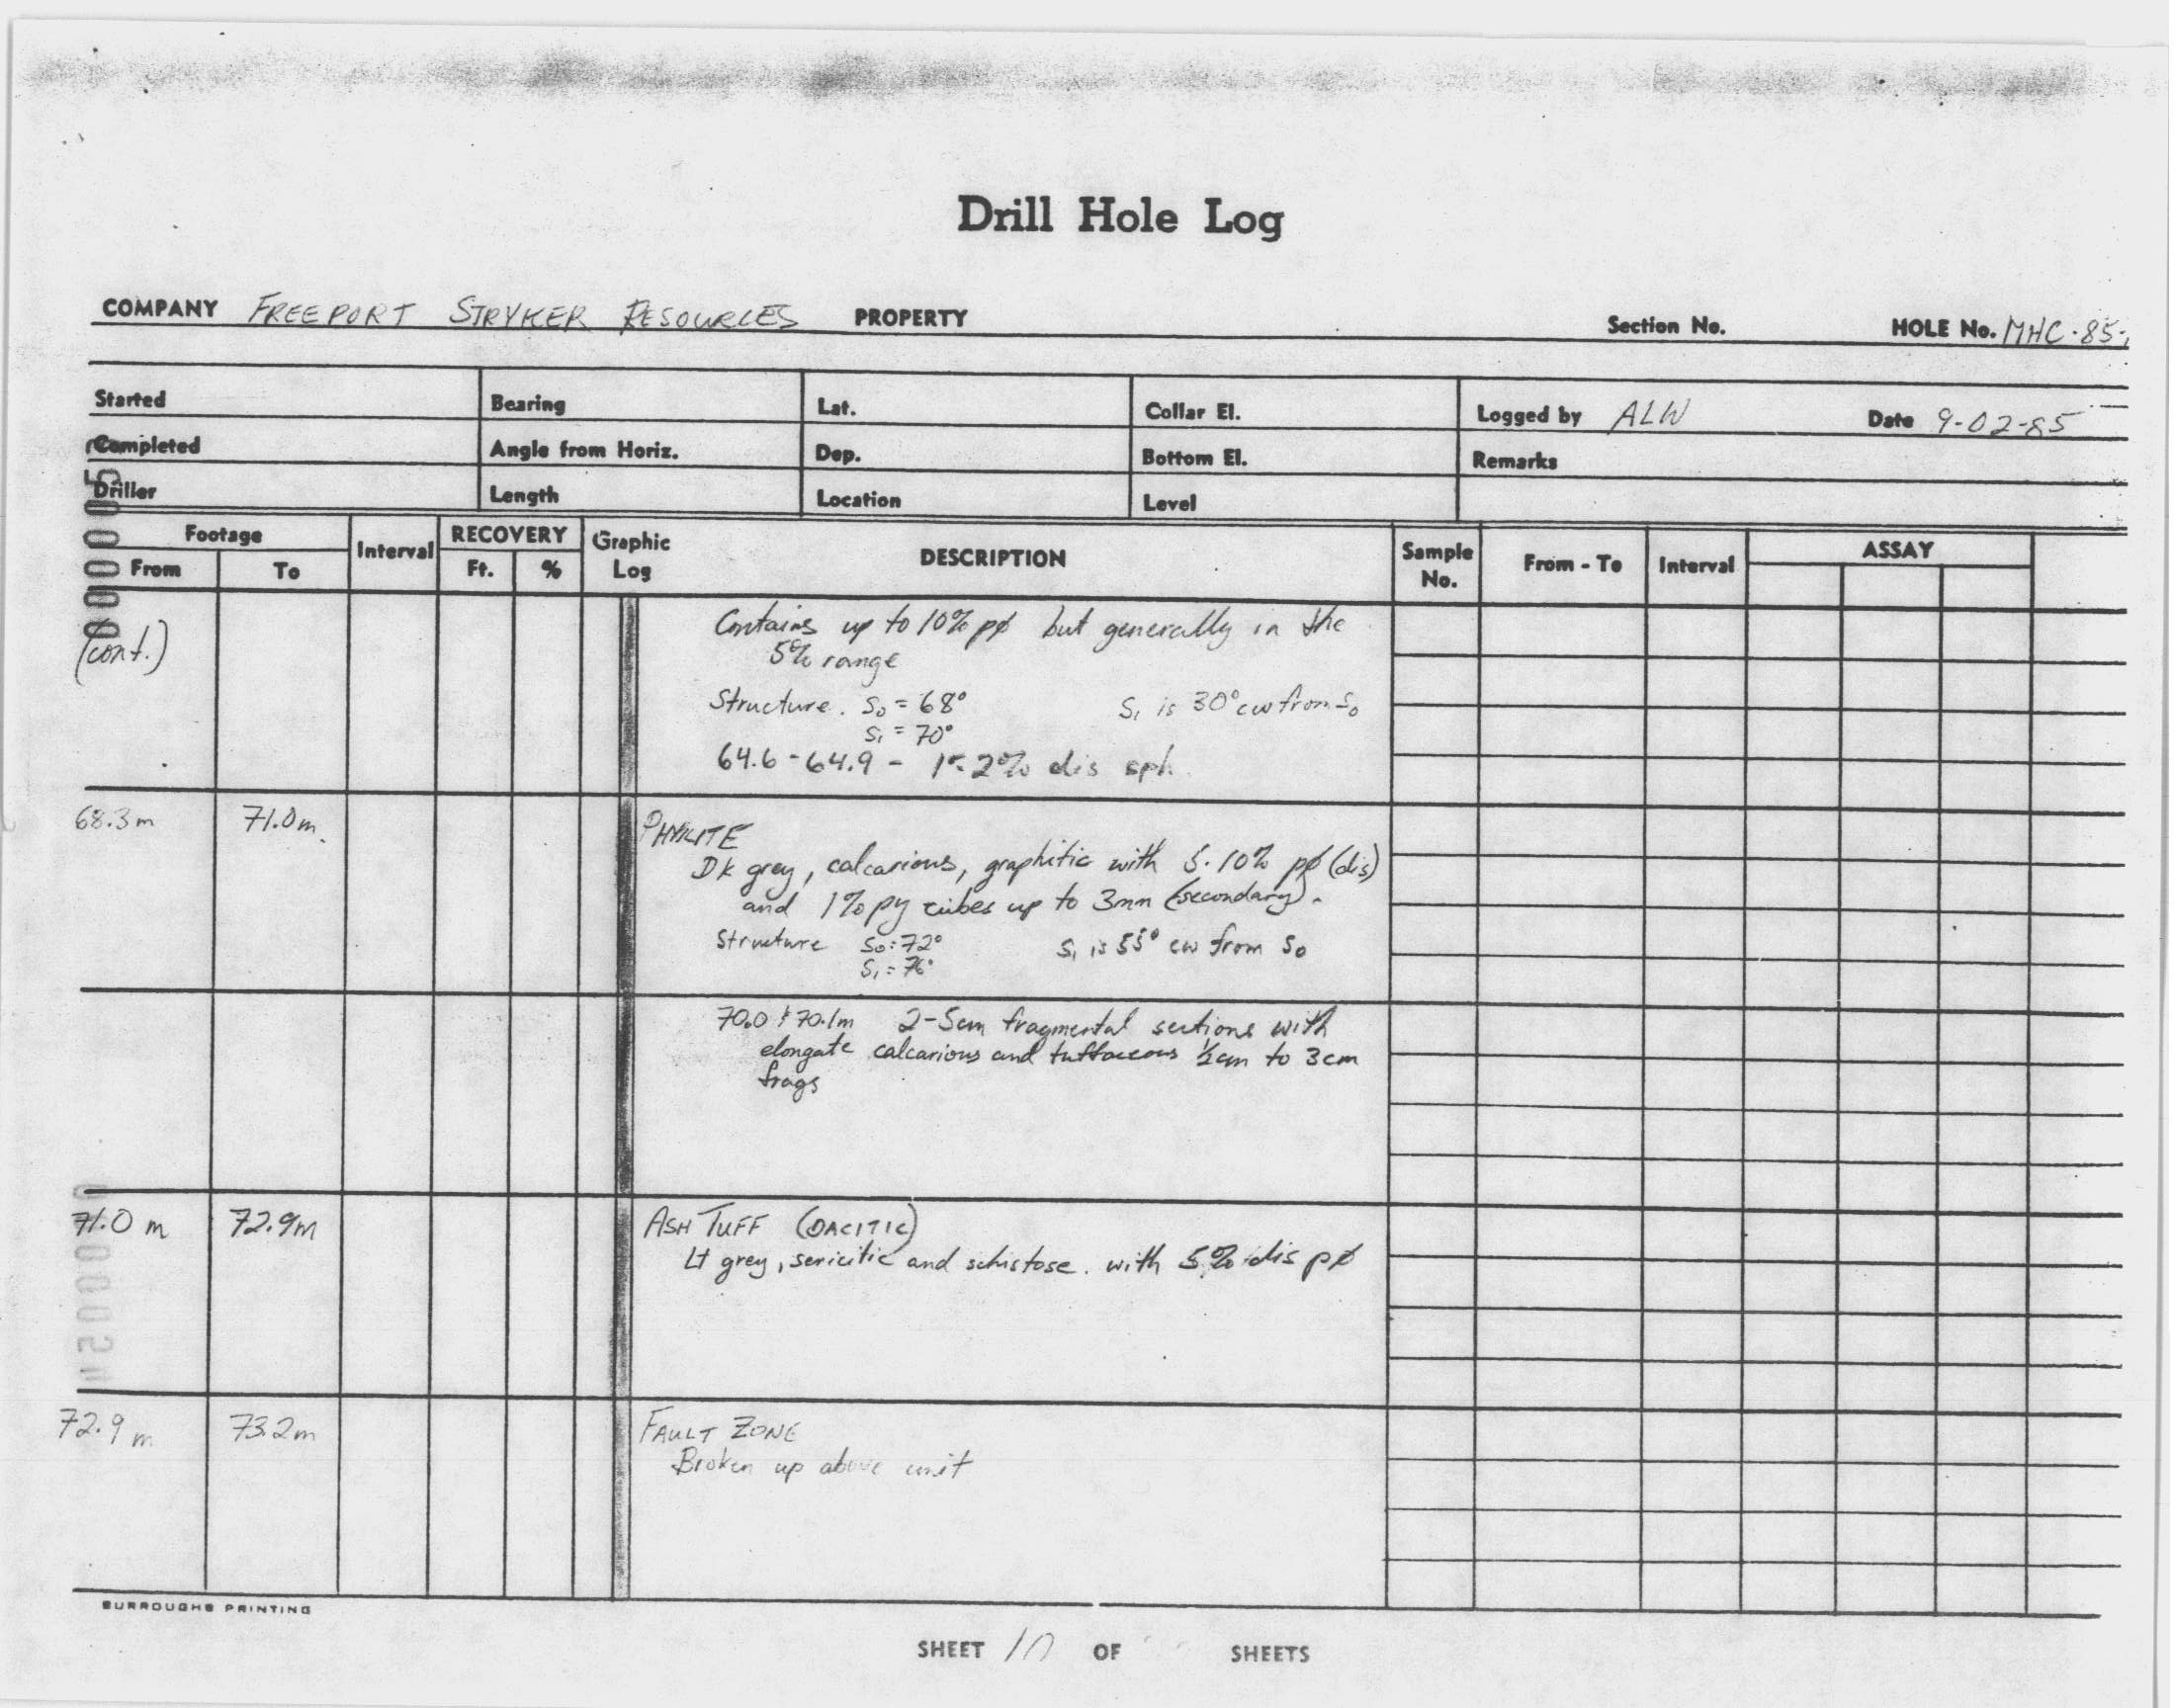 Drill Hole Log
COMPANY FREEPORT STRYKER RESOURCES PROPERTY Section No. HOLE No. MHC-85-
Started Bearing Lat. Collar El. Logged by ALW Date 9-02-85
Completed Angle from Horiz. Dep. Bottom El. Remarks
Driller Length Location Level
Footage Interval RECOVERY Graphic Log DESCRIPTION Sample No. From - To Interval ASSAY
From To Ft. %
(cont.) Contains up to 10% pø but generally in the
5% range
Structure. S₀ = 68° S₁ is 30° cw from S₀
S₁ = 70°
64.6 - 64.9 - 1-2% dis sph
68.3m 71.0m. PHYLLITE
Dk grey, calcarious, graphitic with 5-10% pø (dis)
and 1% py cubes up to 3mm (secondary).
Structure S₀ = 72° S₁ is 55° cw from S₀
S₁ = 76°
70.0 & 70.1m 2-5cm fragmental sections with
elongate calcarious and tuffaceous ½cm to 3cm
frags
71.0 m 72.9m ASH TUFF (DACITIC)
Lt grey, sericitic and schistose. with 5% dis pø
72.9 m 73.2m FAULT ZONE
Broken up above unit
BURROUGHS PRINTING
SHEET 10 OF SHEETS